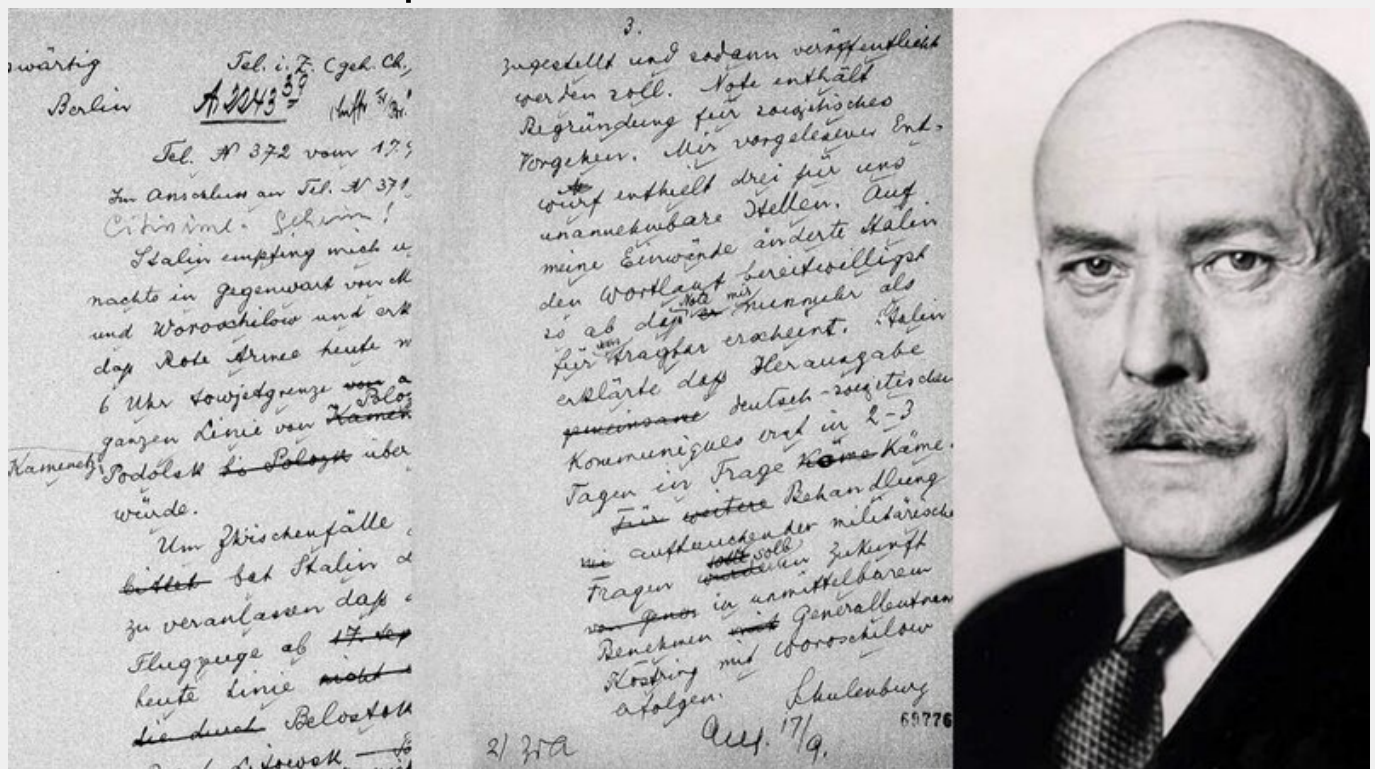 wärtig
Berlin
Tel. i. Z. (geh. Ch.
Tel. N 372 vom 17.9
Im Anschluss an Tel. N 371
Citissime. Geheim!
Stalin empfing mich u
nachts in Gegenwart von M
und Woroschilow und erk
daß Rote Armee heute
6 Uhr Sowjetgrenze von a
Polo
ganzen Linie von Kamen
Kamenetz
Podolsk bis Polozk über
würde.
Um Zwischenfälle
bittet bat Stalin d
zu veranlassen daß
Flugzeuge ab 17. Sep
heute Linie nicht
die durch Belostok
Litowsk
3.
zugestellt und sodann veröffentlicht
werden soll. Note enthält
Begründung für sowjetisches
Vorgehen. Mir vorgelesener Ent-
wurf enthielt drei für uns
unannehmbare Stellen. Auf
meine Einwände änderte Stalin
den Wortlaut bereitwilligst
Note mir
so ab daß nunmehr als
uns
für tragbar erscheint. Stalin
erklärte daß Herausgabe
gemeinsame deutsch-sowjetischen
Kommuniques erst in 2-3
Tagen in Frage Käme Käme.
Für weitere Behandlung
auftauchender militärische
Fragen in Zukunft
von Genos in unmittelbarem
Benehmen mit Generalleutnan
Köstring mit Woroschilow
erfolgen.
Schulenburg
69776
17/9.